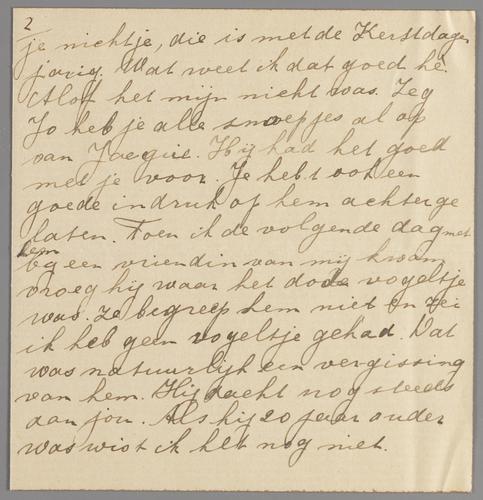 2
je nichtje, die is met de Kerstdagen
jarig. Wat weet ik dat goed hè.
Alof het mijn nicht was. Zeg
Jo heb je alle snoepjes al op
van Jacquie. Hij had het goed
met je voor. Je hebt ook een
goede indruk op hem achterge
laten. Toen ik de volgende dag met
hem
by een vriendin van mij kwam
vroeg hij waar het dode vogeltje
was. Ze begreep hem niet en zei
ik heb geen vogeltje gehad. Dat
was natuurlijk een vergissing
van hem. Hij dacht nog steeds
aan jou. Als hij 20 jaar ouder
was wist ik het nog niet.